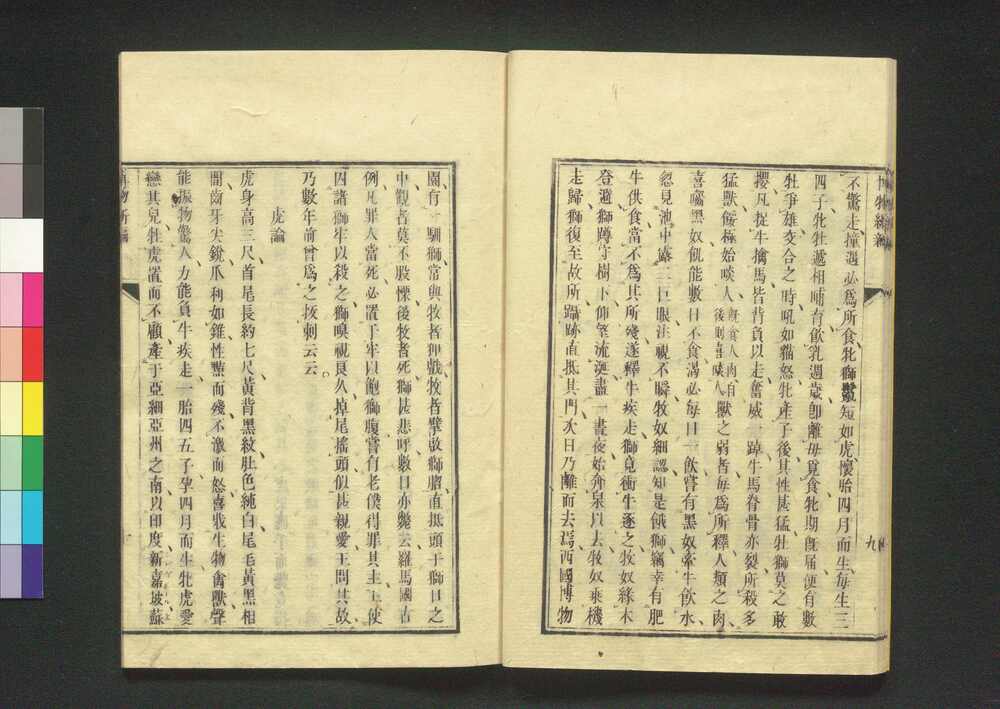 不驚走撞遇必爲所食牝獅鬣短如虎懷胎四月而生每生三
四子牝牡遞相哺育飲乳週歲卽離母覓食牝期旣屆便有數
牡爭雄交合之時吼如猫怒牝產子後其性甚猛牡獅莫之敢
攖凡捉牛擒馬皆背負以走奮威一蹕牛馬脊骨亦裂所殺多
猛獸餒極始啖人旣食人肉自後則喜啖人獸之弱者每爲所釋人類之肉
喜噬黑奴飢能數日不食渴必每日一飲嘗有黑奴牽牛飲水
忽見池中露二巨眼注視不瞬牧奴細認知是餓獅竊幸有肥
牛供食當不爲其所殘遂釋牛疾走獅竟衝牛逐之牧奴緣木
登避獅蹲守樹下仰望流涎盡一晝夜始奔泉以去牧奴乘機
走歸獅復至故所躡跡直抵其門次日乃離而去爲西國博物
園有馴獅常與牧者狎戲牧者擘故獅腊直抵頭于獅口之
中觀者莫不股慄後牧者死獅甚悲呼數日亦斃云羅馬國古
例凡罪人當死必置于牢以飽獅腹嘗有老僕得罪其主主使
囚諸獅牢以殺之獅嗅視良久掉尾搖頭似甚親愛王問其故
乃數年前曾爲之拔刺云云
虎論
虎身高三尺首尾長約七尺黃背黑紋肚色純白尾毛黃黑相
間齒牙尖銳爪利如錐性蠶而殘不激而怒喜戕生物禽獸聲
能振物驚人力能負牛疾走一胎四五子孕四月而生牝虎愛
戀其兒牡虎置而不顧產于亞細亞州之南以印度新嘉坡蘇
博物新編
九